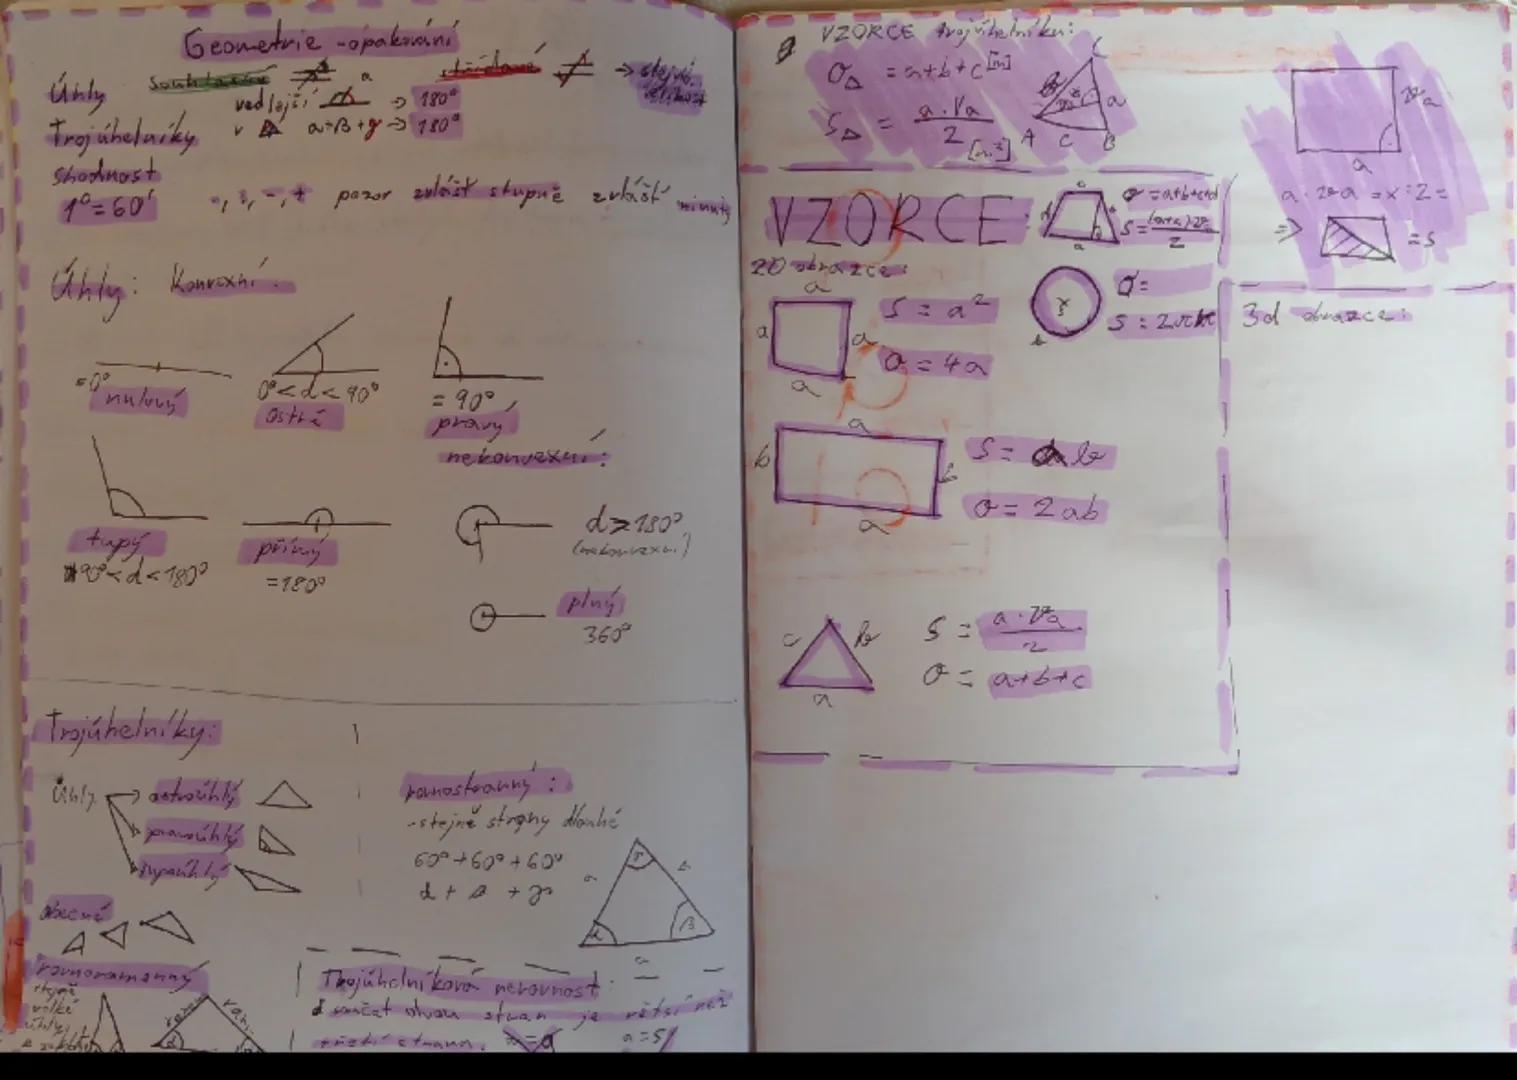 Geometrie - opakování
Úhly souhlasné střídavé → stejná velikost
vedlejší → 180°
Trojúhelníky v α+β+γ → 180°
shodnost
1° = 60' -, :, -, + pozor zvlášť stupně zvlášť minuty
Úhly: Konvexní:
= 0° nulový
0° < α < 90° ostrý
= 90° pravý
nekonvexní:
tupý
90° < α < 180°
přímý
= 180°
α > 180°
(nekonvexní)
plný
360°
Trojúhelníky:
Úhly → ostroúhlý
pravoúhlý
tupoúhlý
obecné
rovnoramenný
stejně
velké
úhly
rovnostranný:
- stejně strany dlouhé
60° + 60° + 60°
α + β + γ
γ
α β
a
Trojúhelníková nerovnost:
součet dvou stran je větší než
třetí strana.
a = 5
VZORCE trojúhelníku:
O△ = a+b+c [m]
S△ = a · va / 2 [m²]
C
a
A c B
va
a
a · va = x : 2 =
⇒ = S
VZORCE:
a
o = a+b+c+d
S = (a+c)·va / 2
a
2D obrazce:
a
a a
a
S = a²
o = 4a
r
O =
S = 2πr
a
b b
a
S = ab
o = 2ab
c b
a
S = a · va / 2
o = a+b+c
3d obrazce: